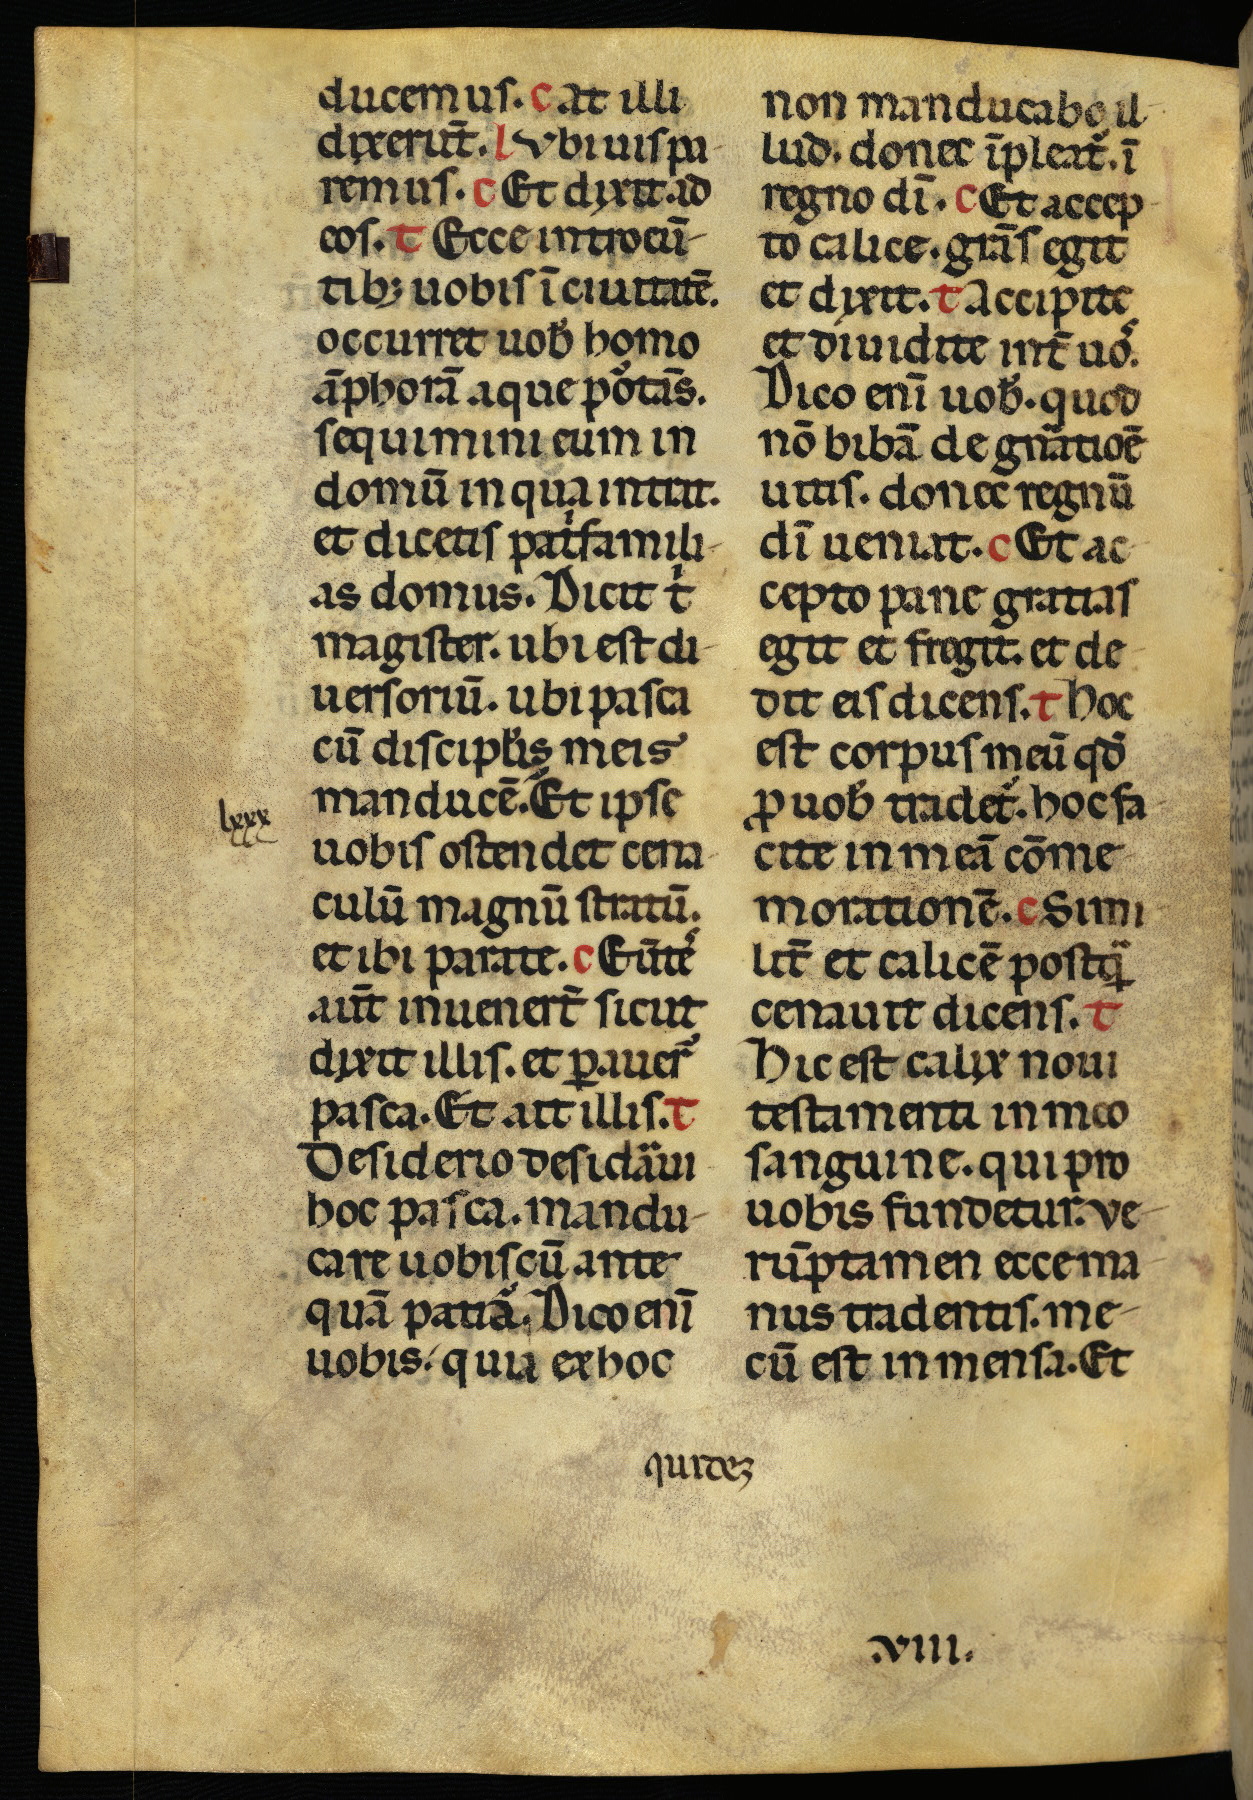 ducemus. c at illi
dixerūt. l Vbi uis pa-
remus. c Et dixit ad
eos. t Ecce introeū-
tib; uobis ī ciuitatē.
occurret uob̄ homo
āphorā aque po͛tās.
sequimini eum in
domū in qua intrat.
et dicetis pat̄famili-
as domus. Dicit t̄
magister. ubi est di-
uersoriū. ubi pasca
cū discipl̄is meis
manducē. Et ipse
uobis ostendet cena-
culū magnū stratū.
et ibi parate. c Eūte͛
aūt inuenert̄ sicut
dixit illis. et ꝑauer̄
pasca. Et ait illis. t
Desiderio desidaͣui
hoc pasca. mandu-
care uobiscū ante-
quā patia͛. Dico enī
uobis. quia ex hoc
non manducabo il-
lud. donec īpleat᷑. ī
regno dī. c Et accep-
to calice. grās egit
et dixit. t Accipite
et diuidite int̄ uo͛.
Dico enī uob̄. quod
nō bibā de gnātioē
uitis. donec regnū
dī ueniat. c Et ac-
cepto pane gratias
egit et fregit. et de-
dit eis dicens. t hoc
est corpus meū qd̄
ꝓ uob̄ tradet᷑. hoc fa-
cite in meā cōme-
morationē. c Simi-
lit̄ et calicē postqͣ̄
cenauit dicens. t
Hic est calix noui
testamenti in meo
sanguine. qui pro
uobis fundetur. Ve-
rūptamen ecce ma-
nus tradentis. me-
cū est in mensa. Et
lxxx
.VIII.